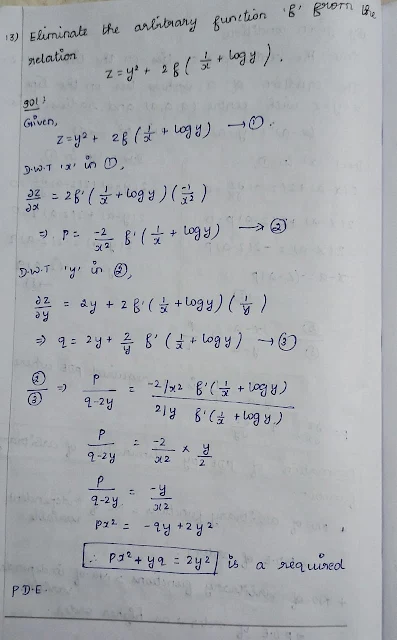 13) Eliminate the arbitrary function 'f' from the
relation
z = y² + 2f ( 1/x + log y ).
Sol:
Given,
z = y² + 2f ( 1/x + log y ) → ①.
D.W.T 'x' in ①,
∂z/∂x = 2f' ( 1/x + log y ) ( -1/x² )
⇒ P = -2/x² f' ( 1/x + log y ) → ②
D.W.T 'y' in ②,
∂z/∂y = 2y + 2f' ( 1/x + log y ) ( 1/y )
⇒ q = 2y + 2/y f' ( 1/x + log y ) → ③
②/③ ⇒ P/(q-2y) = (-2/x² f' ( 1/x + log y )) / (2/y f' ( 1/x + log y ))
P/(q-2y) = -2/x² × y/2
P/(q-2y) = -y/x²
Px² = -qy + 2y²
∴ Px² + yq = 2y² is a required
P.D.E